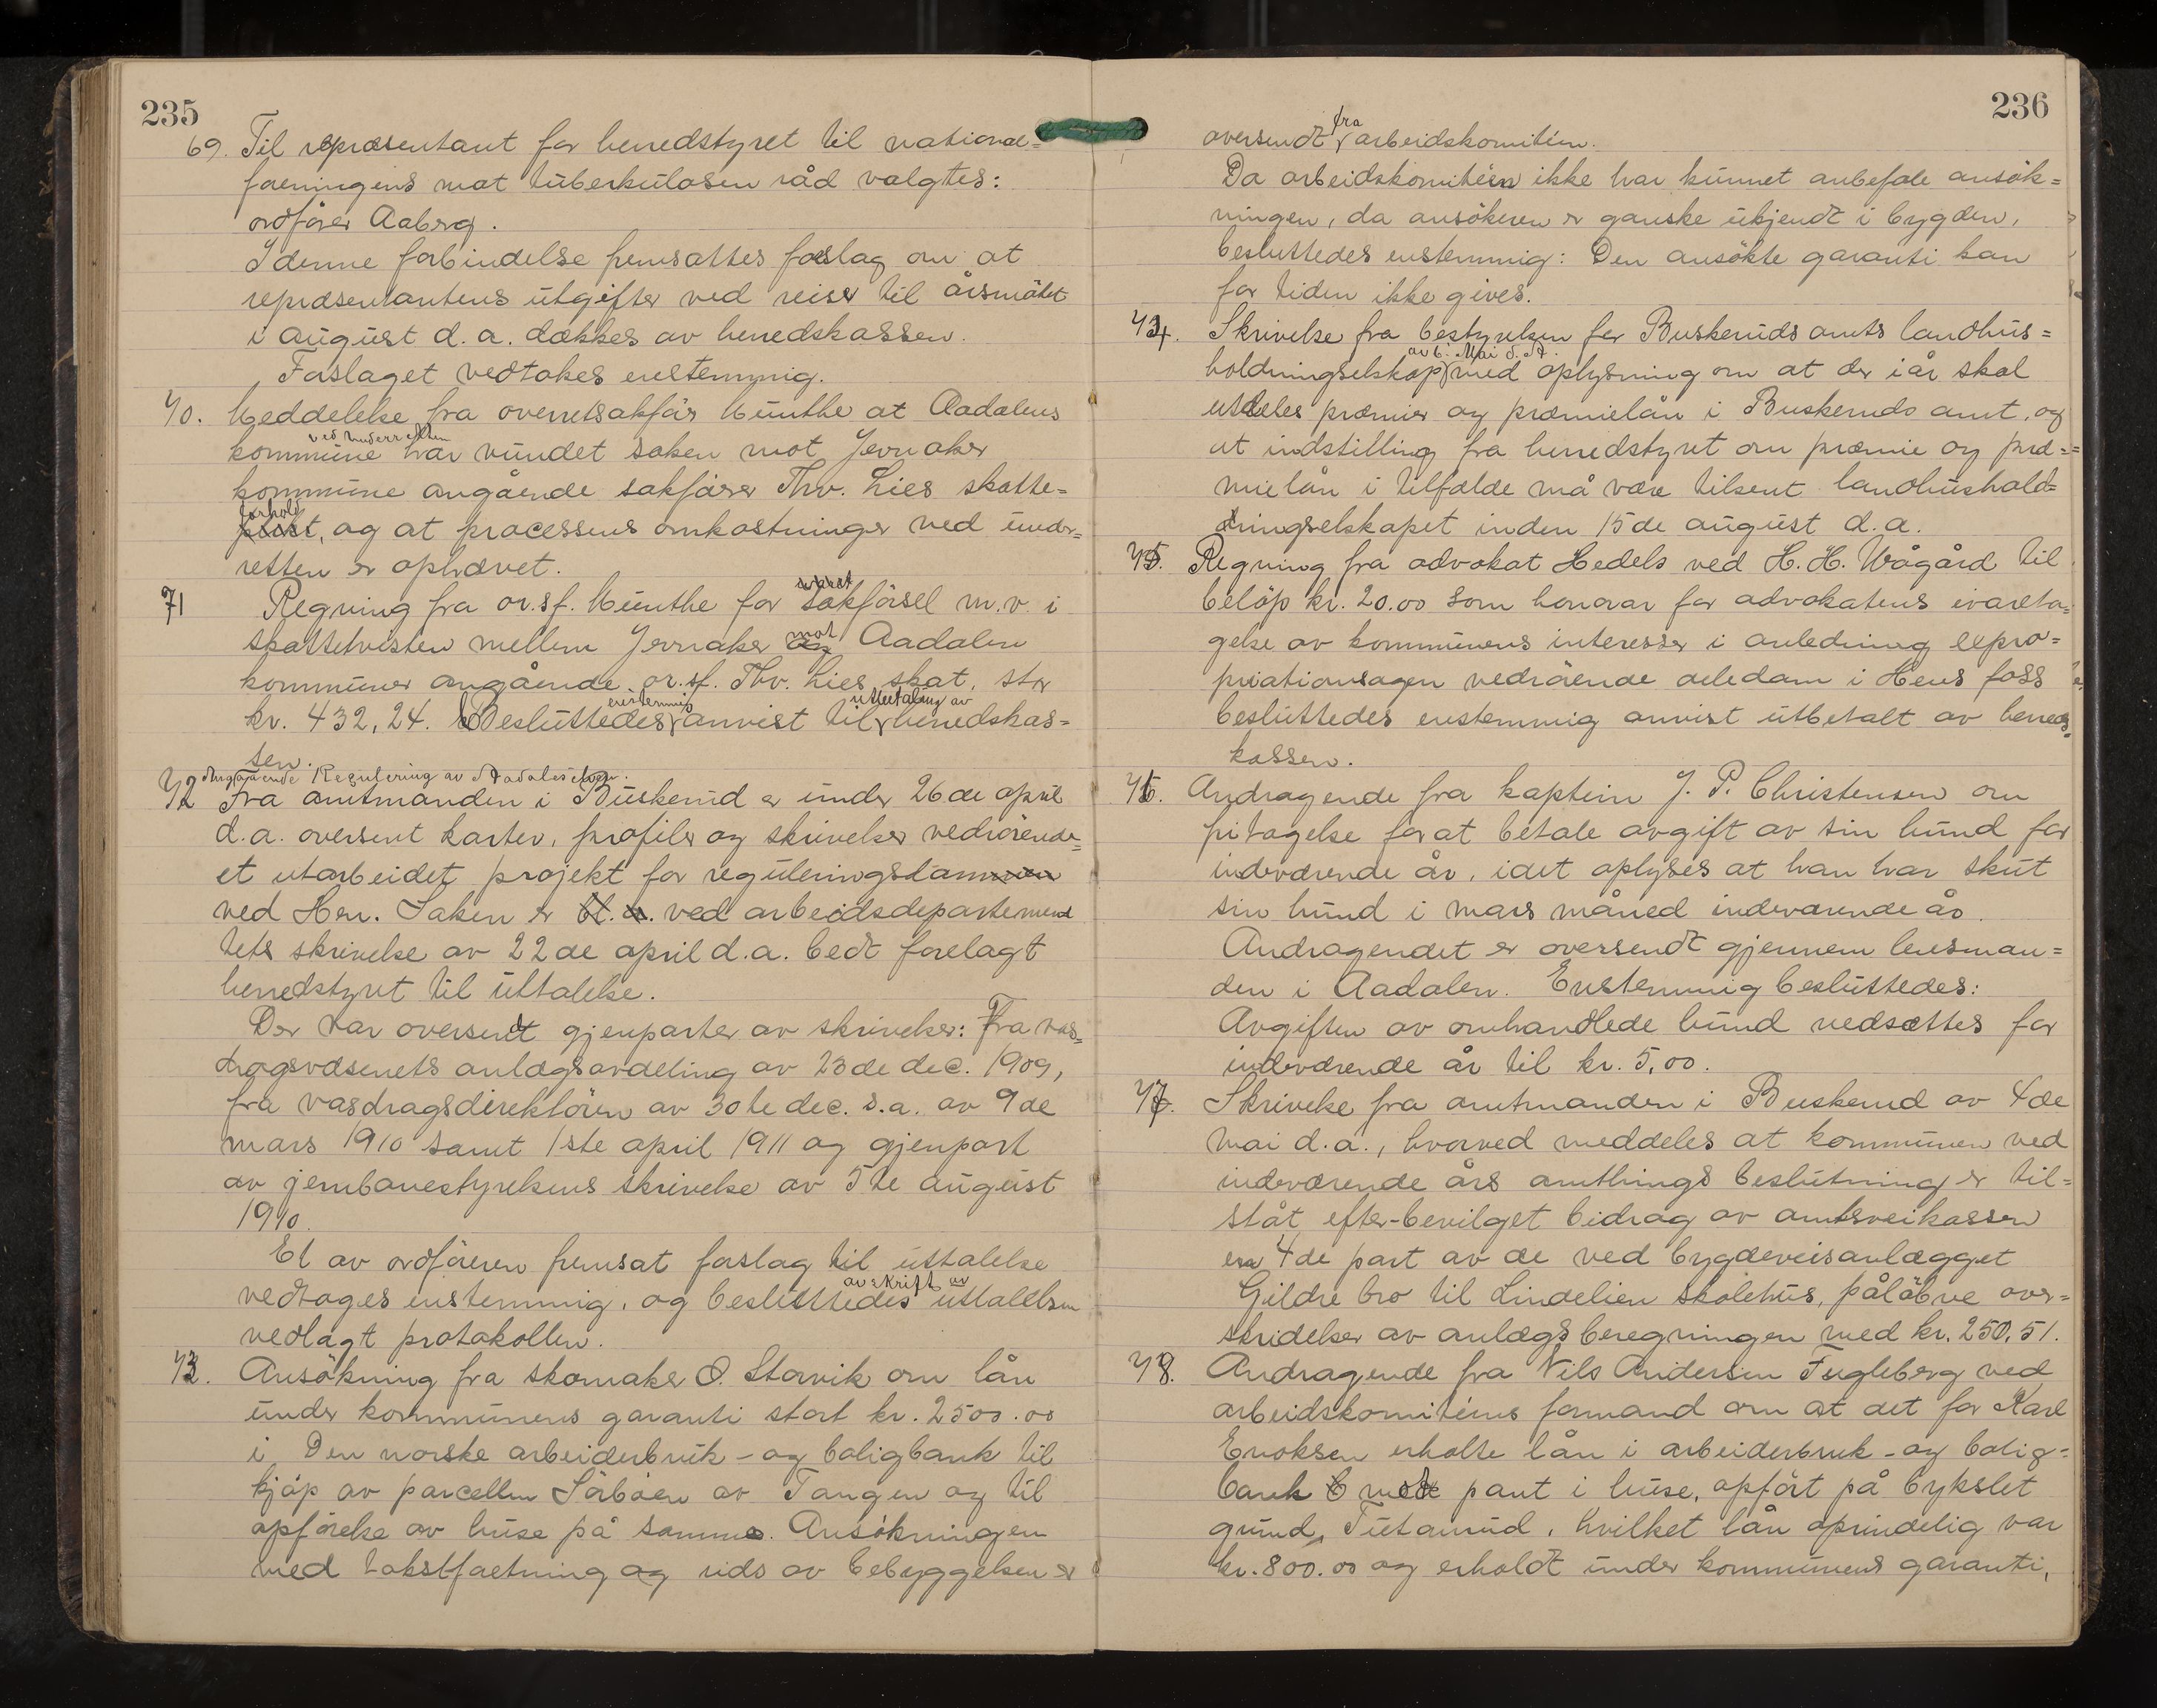 235
69. Til repræsentant for herredstyret til national=
foreningens mot tuberkulosen råd valgtes:
ordfører Aaberg.
I denne forbindelse fremsattes forslag om at
repræsentantens utgifter ved reiser til årsmötet
i august d. a. dækkes av herredskassen.
Forslaget vedtokes enstemmig.
70. Meddelelse fra overretsakför Munthe at Aadalens
ved underretten
kommune har vundet saken mot Jevnaker
kommune angående sakförer Thv. Lies skatte=
forhold
pligt, og at processens omkostninger ved under=
retten er ophævet.
71 Regning fra or.sf. Munthe for sakförsel m.v. i
mot
skattetvisten mellem Jevnaker og Aadalen
kommuner angående or.sf. Thv. Lies skat, stor
enstemmig utbetaling av
kr. 432,24. Besluttedes anvist til herredskas=
sen.
Angående Regulering av Aadalselven.
72 Fra amtmanden i Buskerud er under 26de april
d.a. oversent karter, profiler og skrivelser vedrörende
et utarbeidet projekt for reguleringsdammen
ved Hen. Saken er bl. a. ved arbeidsdepartemen
tets skrivelse av 22de april d.a. bedt forelagt
herredstyret til uttalelse.
Der var oversendt gjenparter av skrivelser: Fra vas=
dragsvæsenets anlægsavdeling av 23de dec. 1909,
fra vasdragsdirektören av 30te dec. s.a. av 9de
mars 1910 samt 1ste april 1911 og gjenpart
av jernbanestyrelsens skrivelse av 5te august
1910.
Et av ordföreren fremsat forslag til uttalelse
avskrift av
vedtoges enstemmig, og besluttedes uttalelsen
vedlagt protokollen.
73. Ansökning fra skomaker O. Storvik om lån
under kommunens garanti stort kr. 2500.00
i Den norske arbeiderbruk- og boligbank til
kjöp av parcellen Sörböen av Tangen og til
opförelse av huse på samme. Ansökningen
med takstforretning og rids av bebyggelsen er
236
fra
oversendt arbeidskomitéen.
Da arbeidskomitéen ikke har kunnet anbefale ansök=
ningen, da ansökeren er ganske ukjendt i bygden,
besluttedes enstemmig: Den ansökte garanti kan
for tiden ikke gives.
74. Skrivelse fra bestyrelsen for Buskeruds amts landhus=
av 6. Mai d. A.
holdningselskap med oplysning om at der iår skal
utdeles præmier og præmielån i Buskeruds amt, og
at indstilling fra herredstyret om præmie og præ=
mielån i tilfælde må være tilsent landhushold=
ningselskapet inden 15de august d.a.
75. Regning fra advokat Hedels ved H. H. Wågård til
belöp kr. 20.00 som honorar for advokatens ivareta=
gelse av kommunens interesser i anledning expro=
priationsagen vedrörende deledam i Hens foss
besluttedes enstemmig anvist utbetalt av herreds=
kassen.
76. Andragende fra kaptein J. P. Christensen om
fritagelse for at betale avgift av sin hund for
indeværende år, idet oplyses at han har skut
sin hund i mars måned indeværende år.
Andragendet er oversendt gjennem lensman=
den i Aadalen. Enstemmig besluttedes:
Avgiften av omhandlede hund nedsættes for
indeværende år til kr. 5,00.
77. Skrivelse fra amtmanden i Buskerud av 4de
mai d.a., hvorved meddeles at kommunen ved
indeværende års amtstings beslutning er til=
ståt efter-bevilget bidrag av amtsveikassen
en 4de part av de ved bygdeveisanlægget
Gildre bro til Lindelien skolehus, påløbne over=
skridelser av anlægsberegningen med kr. 250,51.
78. Andragende fra Nils Andersen Fugleberg ved
arbeidskomitéens formand om at det for Karl
Enoksen erholte lån i arbeiderbruk- og bolig=
bank mot pant i huse, opfört på bykslet
grund, Tutamud, hvilket lån oprindelig var
kr. 800.00 og erholdt under kommunens garanti,